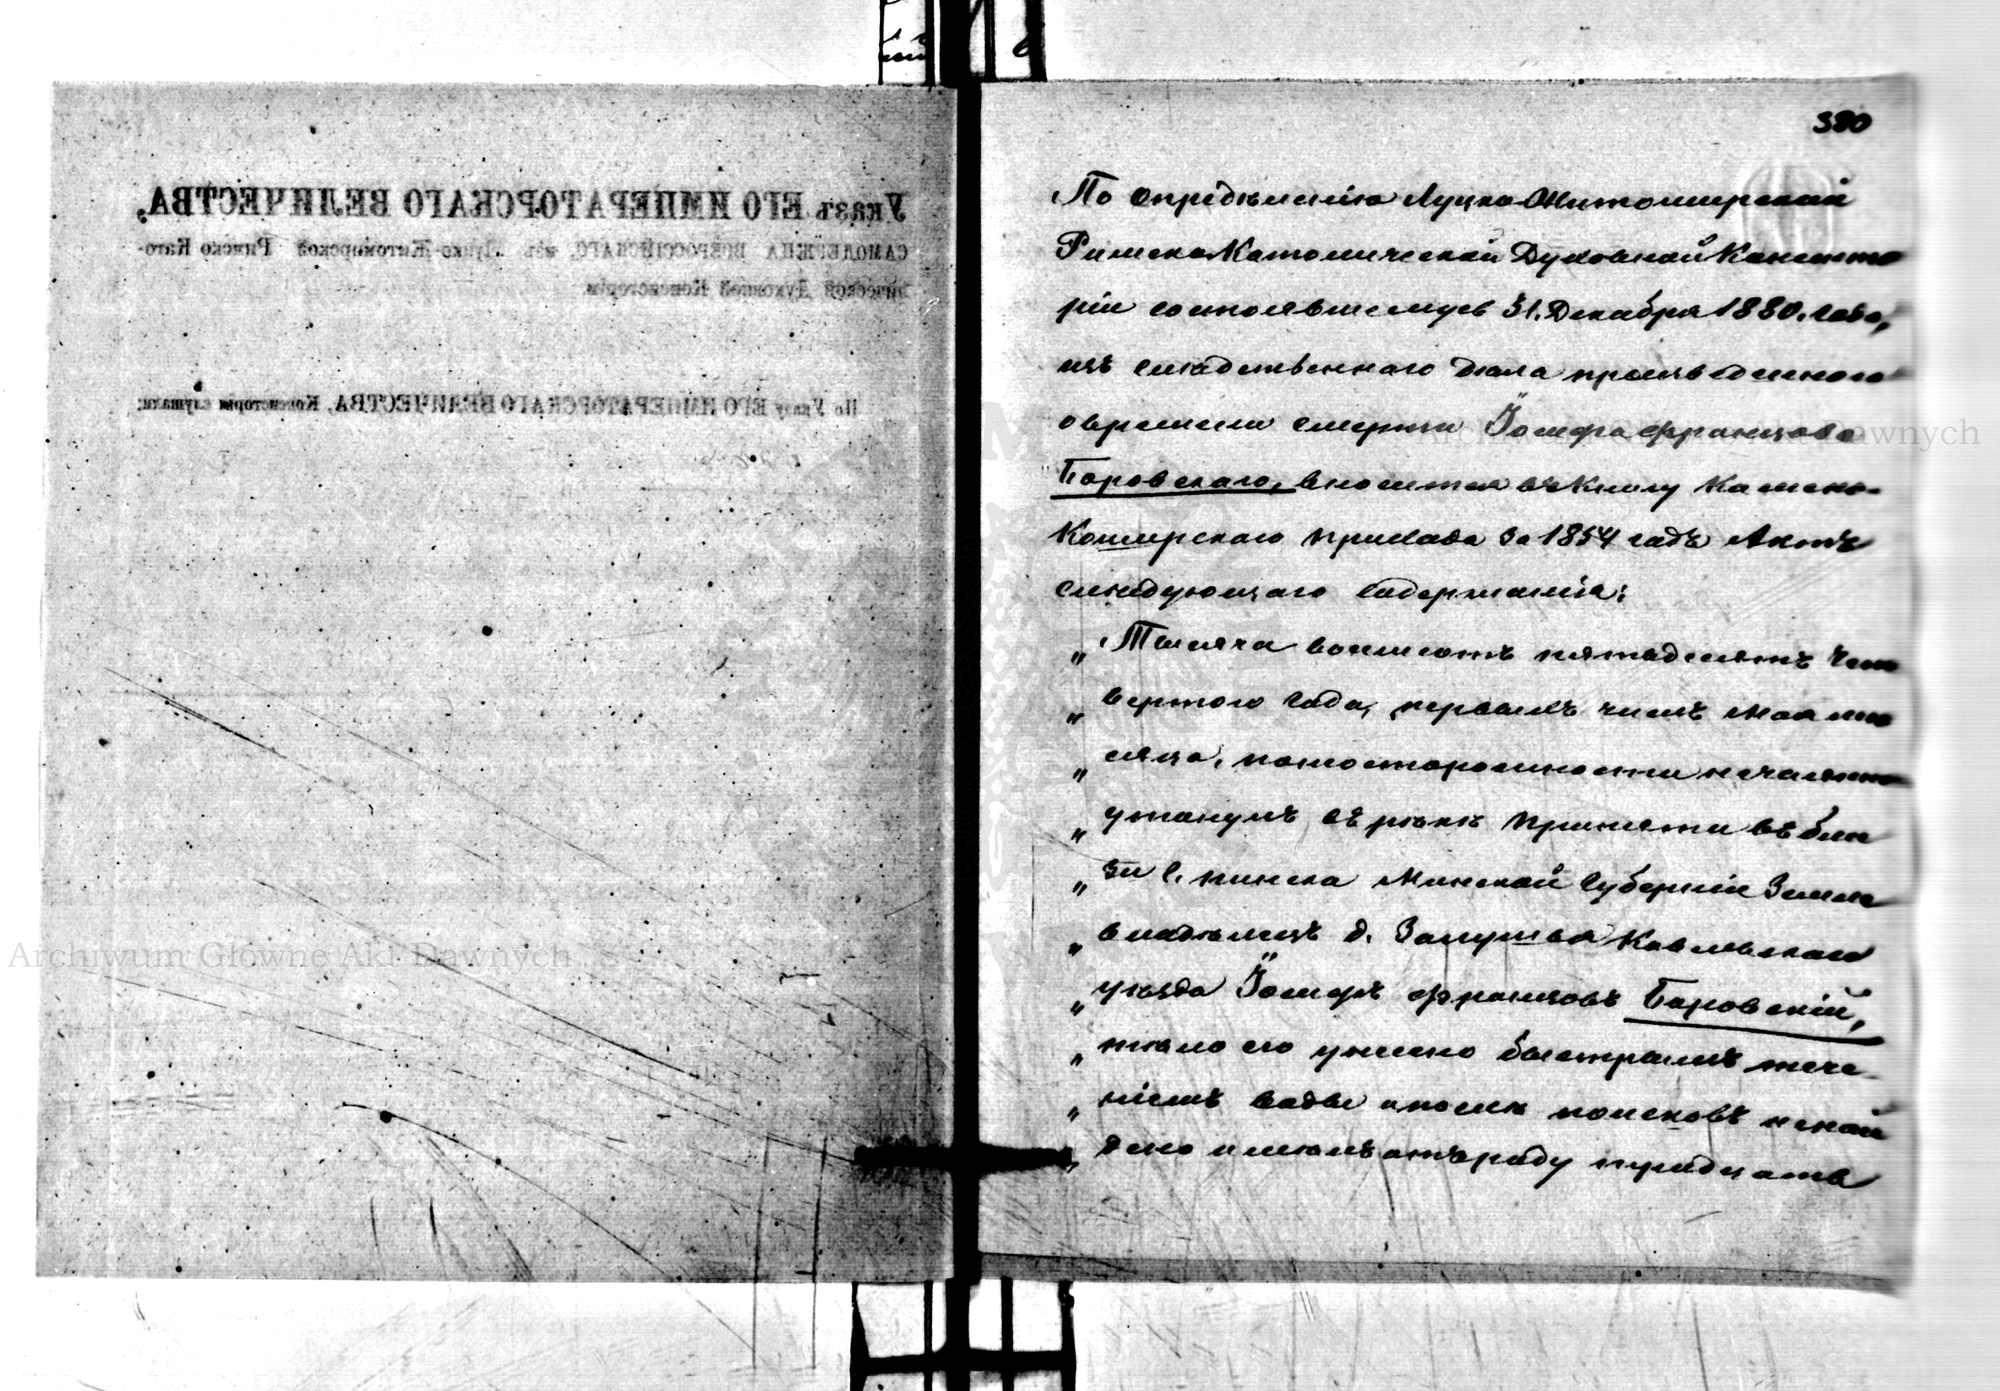 Указъ ЕГО ИМПЕРАТОРСКАГО ВЕЛИЧЕСТВА,
САМОДЕРЖЦА ВСЕРОССІЙСКАГО, изъ Луцко-Житомирской Римско Като-
лической Духовной Консисторіи.
По Указу ЕГО ИМПЕРАТОРСКАГО ВЕЛИЧЕСТВА, Консисторія слушали:
380
По опредѣленію Луцко Житомирской
Римско Католической Духовной Консисто
ріи состоявшемуся 31. Декабря 1880. года,
изъ слѣдственнаго дѣла произведеннаго
о времени смерти Іосифа Францова
Боровскаго, вносится въ Книгу Камень-
Коширскаго прихода за 1854 годъ Актъ
слѣдующаго содержанія:
„ Тысяча восемсотъ пятьдесятъ чет
„ вертого года, первымъ числъ Мая мѣ
„ сяца, по неосторожности нечаянно
„ утонулъ въ рѣкѣ Припяти въ бли
„ зи г. Пинска Минской Губерніи Земле
„ владѣлецъ д. Ковельскаго
„ уѣзда Іосифъ Францовъ Боровскій,
„ тѣло его унесено быстрымъ тече-
„ ніемъ воды и послѣ поисковъ не най
„ дено имѣлъ отъ роду тридцать
Archiwum Główne Akt Dawnych
Archiwum Główne Akt Dawnych